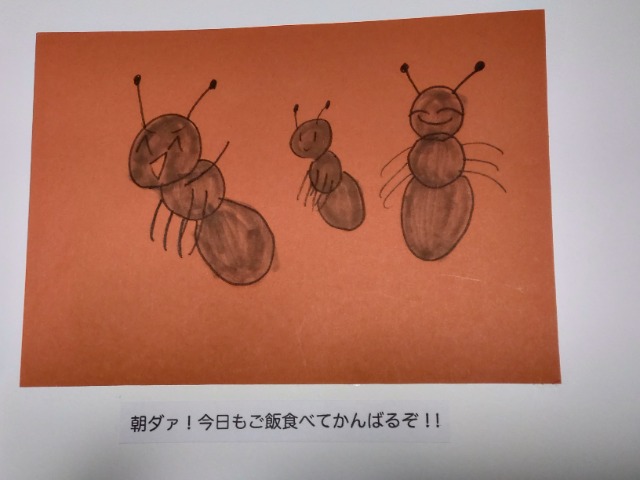 朝ダァ！今日もご飯食べてかんばるぞ！！